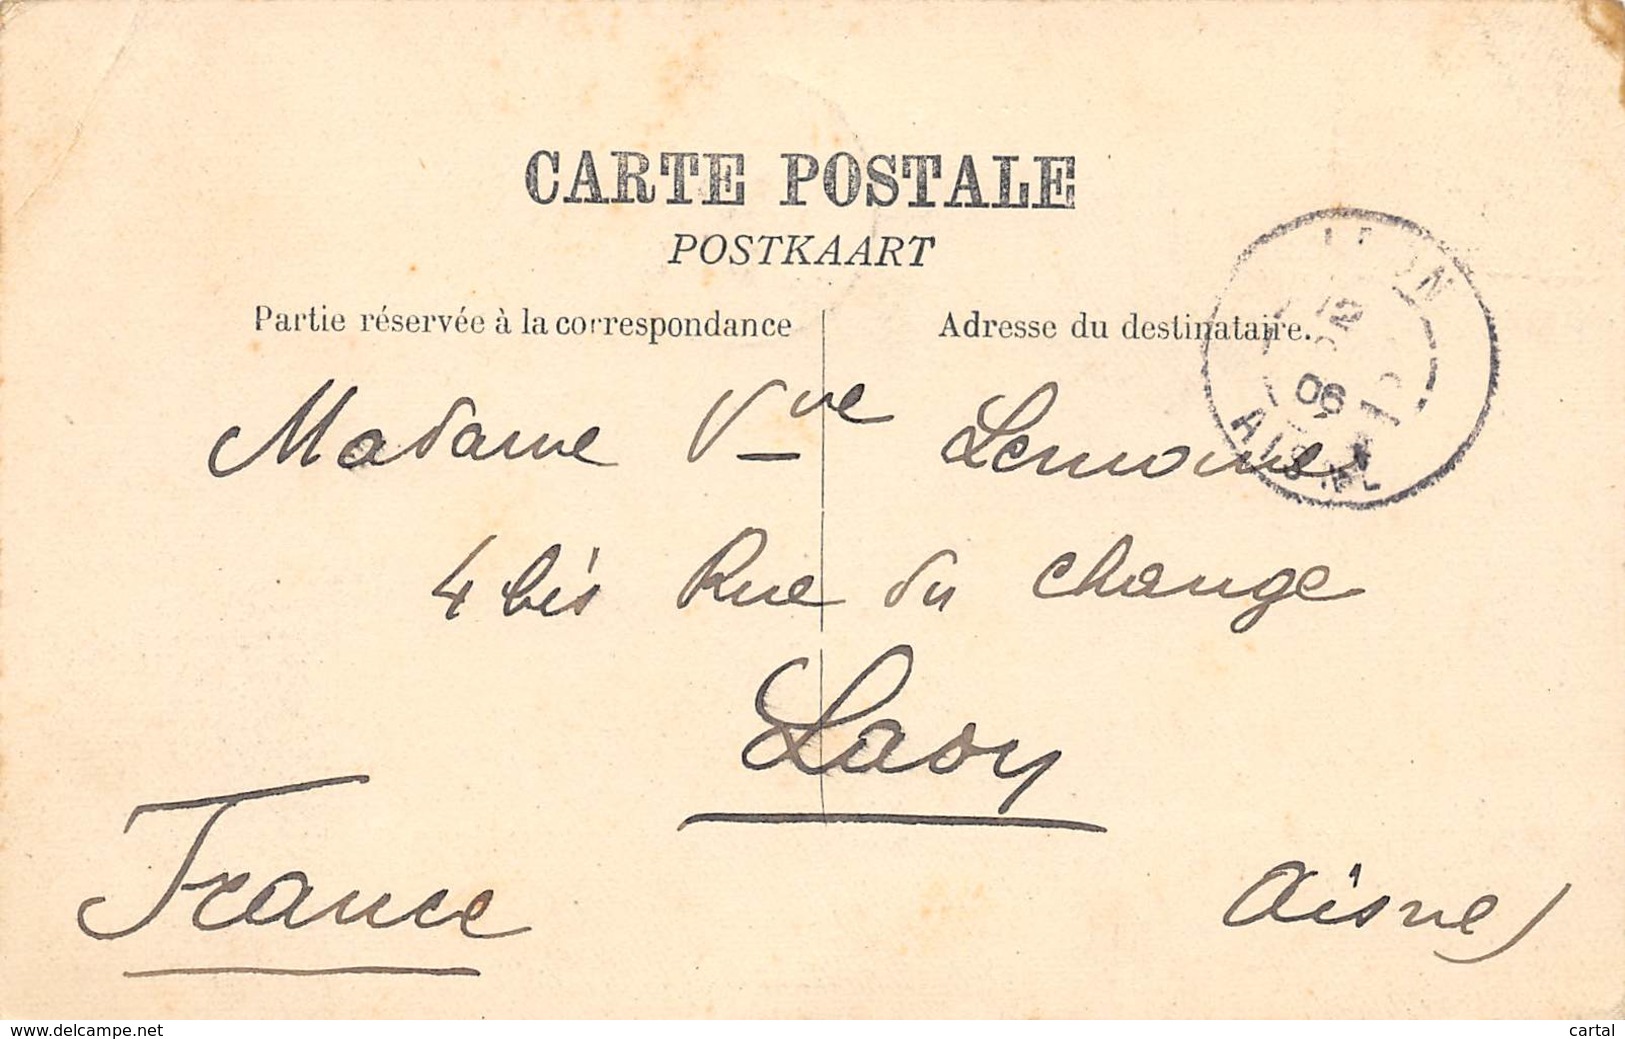 CARTE POSTALE
POSTKAART
Partie réservée à la correspondance
Adresse du destinataire.
06
AISNE
Madame Vve Lemoine
4 bis Rue du Change
Laon
France
Aisne)
www.delcampe.net
cartal